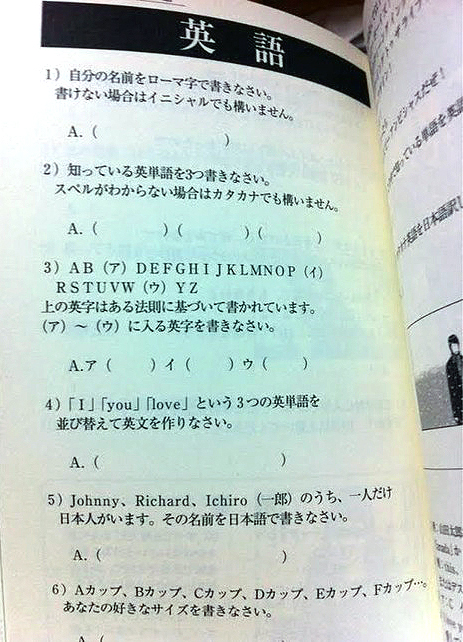 英語
1）自分の名前をローマ字で書きなさい。
書けない場合はイニシャルでも構いません。
A.（　　　　　）
2）知っている英単語を3つ書きなさい。
スペルがわからない場合はカタカナでも構いません。
A.（　　　）（　　　）（　　　）
3）A B（ア）D E F G H I J K L M N O P（イ）
R S T U V W（ウ）Y Z
上の英字はある法則に基づいて書かれています。
（ア）～（ウ）に入る英字を書きなさい。
A.ア（　　）イ（　　）ウ（　　）
4）「I」「you」「love」という3つの英単語を
並び替えて英文を作りなさい。
A.（　　　　　　　）
5）Johnny、Richard、Ichiro（一郎）のうち、一人だけ
日本人がいます。その名前を日本語で書きなさい。
A.（　　　　　　　）
6）Aカップ、Bカップ、Cカップ、Dカップ、Eカップ、Fカップ…。
あなたの好きなサイズを書きなさい。